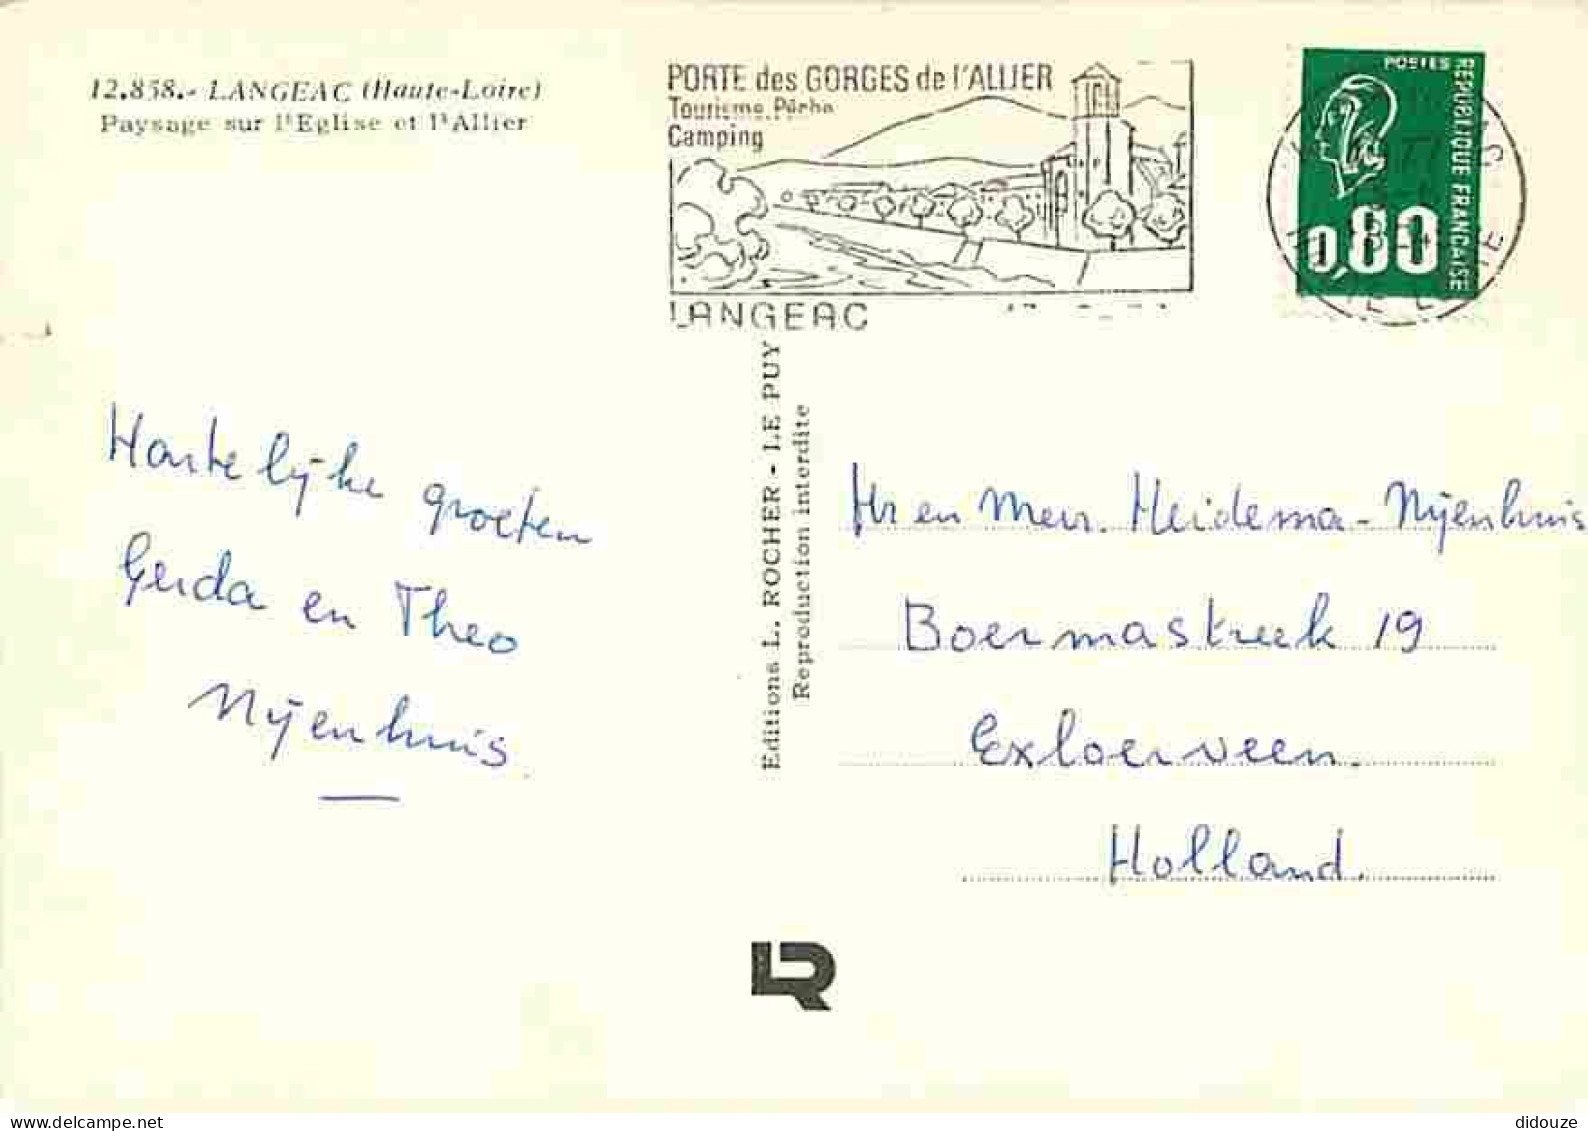 12.858.- LANGEAC (Haute-Loire)
Paysage sur l'Eglise et l'Allier
PORTE des GORGES de l'ALLIER
Tourisme. Pêche
Camping
LANGEAC
POSTES
REPUBLIQUE FRANCAISE
0,80
Hartelijke groeten
Gerda en Theo
Nijenhuis
Editions L. ROCHER - LE PUY
Reproduction interdite
Hr en Mevr. Heidema - Nijenhuis
Boermastreek 19
Exloerveen.
Holland.
LR
didouze
delcampe.net